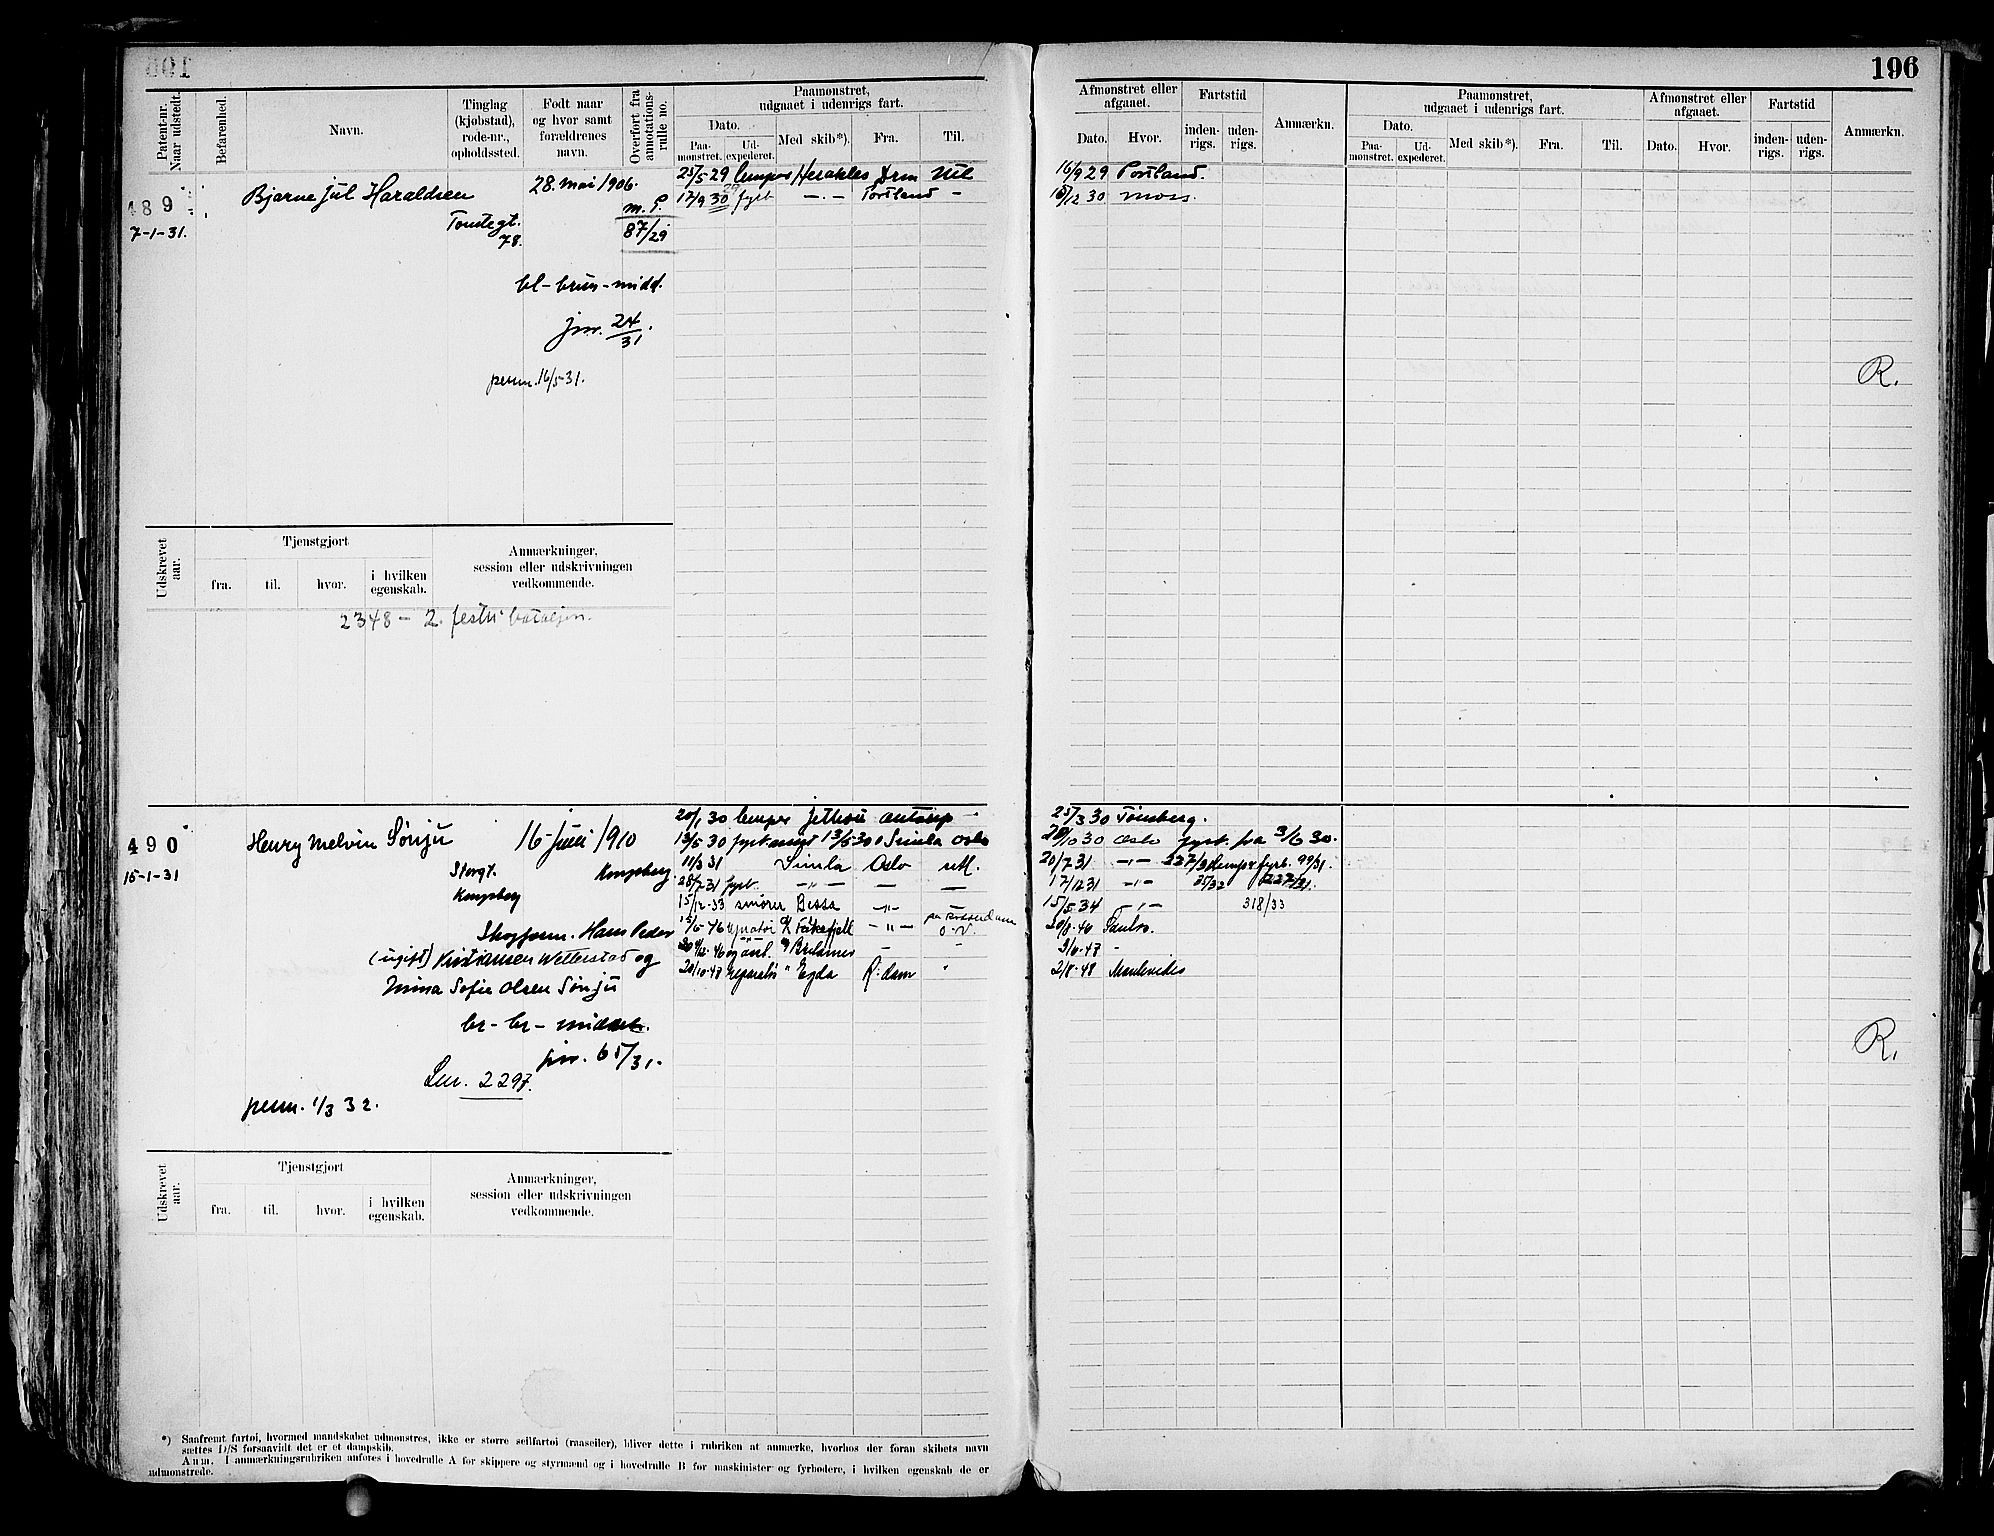 196
Patent-nr. Naar udstedt.
Befarenhed.
Navn.
Tinglag (kjøbstad), rode-nr., opholdssted.
Født naar og hvor samt forældrenes navn.
Overført fra annotations-rulle no.
Paamønstret, udgaaet i udenrigs fart.
Dato.
Paa-mønstret.
Ud-expederet.
Med skib*).
Fra.
Til.
Afmønstret eller afgaaet.
Dato.
Hvor.
Fartstid
inden-rigs.
uden-rigs.
Anmærkn.
Paamønstret, udgaaet i udenrigs fart.
Dato.
Paa-mønstret.
Ud-expederet.
Med skib*).
Fra.
Til.
Afmønstret eller afgaaet.
Dato.
Hvor.
Fartstid
inden-rigs.
uden-rigs.
Anmærkn.
489
7-1-31.
Bjarne Jul Haraldsen
Tomtegt. 78.
28. mai 1906.
m. P. 87/29
25/5 29 lemper Herakles Drm Utl
16/9 29 Portland.
17/9 30 29 fyrb —.— Portland —
12 30 Moss.
bl - brun - midd.
jnr. 24/31.
perm. 16/5-31.
R.
Udskrevet aar.
Tjenstgjort
fra.
til.
hvor.
i hvilken egenskab.
Anmærkninger, session eller udskrivningen vedkommende.
2348 - 2. bataljon.
490
15-1-31
Henry Melvin Sønju
Storgt. Kongsberg
16 juli 1910
Kongsberg.
Hans Peder
(ugift) Kristiansen Wetterstad og
Sofie Olsen Sønju
br - br - middel.
jnr. 65/31.
Lnr. 2297.
perm. 1/3 32.
20/1 30 lemper Jethou
25/3 30 Tønsberg.
13/5 30 Simla Oslo
10 30 Oslo fyrb. fra 3/6 30.
11/3 31 Simla Oslo utl.
20/7 31 —"— 99/31.
28/7 31 fyrb. —"— — —
17/12 31 —"— 35/32 227/31.
15/12-33 smører Bessa —"— —
15/5-34 —"— 318/33
46 Falkefjell —"—
46
47 —
20/10-47 reparatør " Egda R.dam "
2/8-48 Montevideo
R.
Udskrevet aar.
Tjenstgjort
fra.
til.
hvor.
i hvilken egenskab.
Anmærkninger, session eller udskrivningen vedkommende.
*) Saafremt fartøi, hvormed mandskabet udmønstres, ikke er større seilfartøi (raaseiler), bliver dette i rubriken at anmærke, hvorhos der foran skibets navn
sættes D/S forsaavidt det er et dampskib.
Anm. I anmærkningsrubriken anføres i hovedrulle A for skippere og styrmænd og i hovedrulle B for maskinister og fyrbødere, i hvilken egenskab de er
udmønstrede.